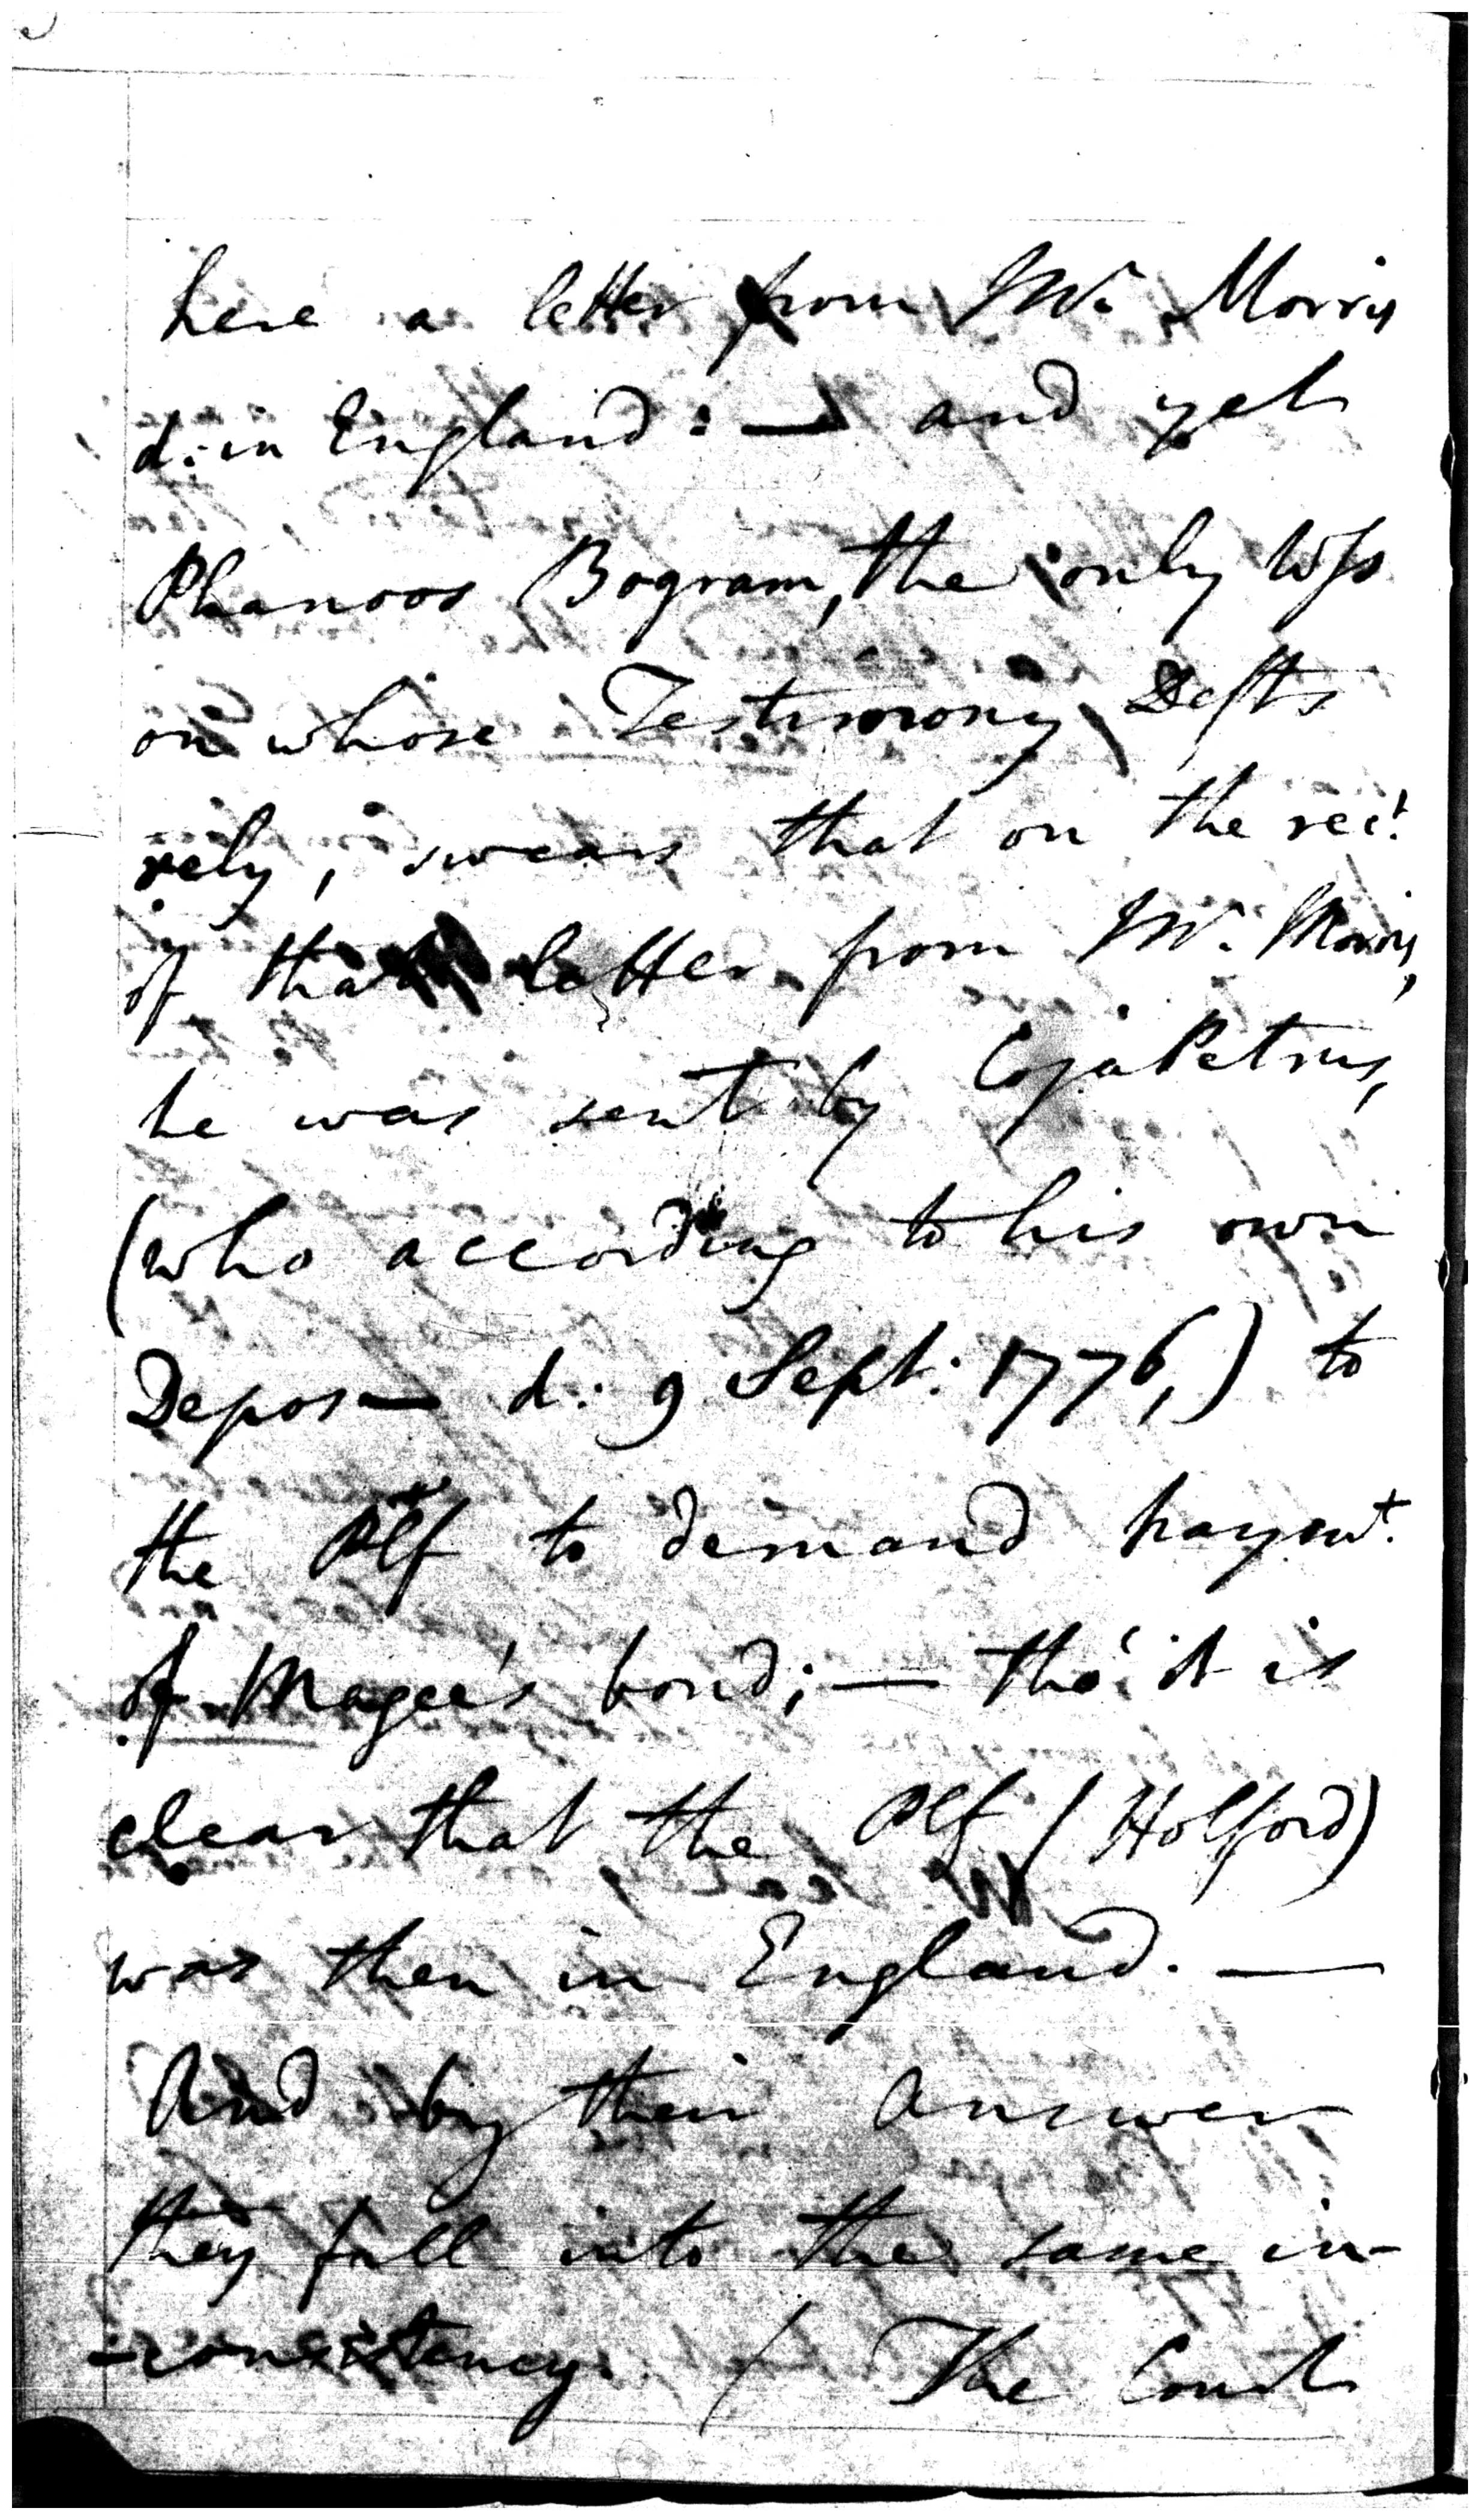 here a letter from Mr. Morris
d: in England: — and yet
Phanoos Bogram, the only Wss
on whose Testimony Defts
rely, swears that on the rect.
of that letter from Mr. Morris,
he was sent by CojaPetrus,
(who according to his own
Depos— d: 9 Sept: 1776,) to
the Plf to demand paymt.
of Magee's bond; — tho' it is
clear that the Plf (Holford)
was then in England. —
And by their Answer
they fall into the same in-
-consistency. ( The Court